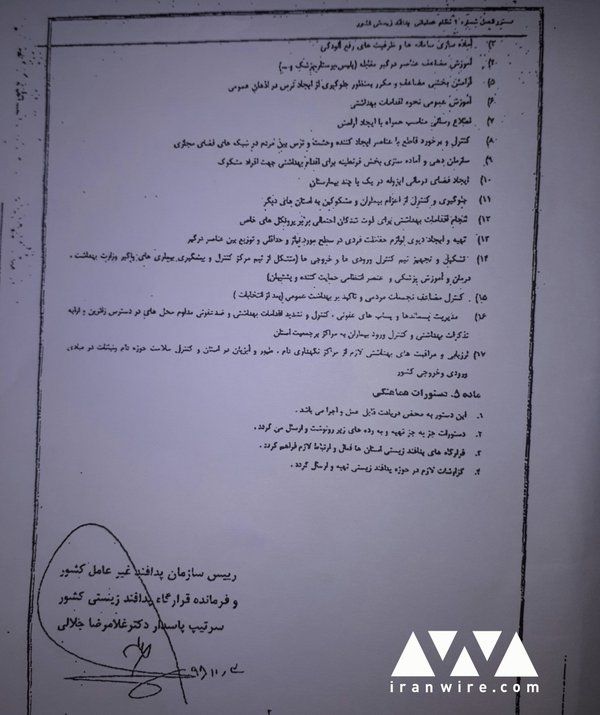 دستور العمل شماره ۱ نظام عملیاتی پدافند زیستی کشور
۳) آماده سازی سامانه ها و ظرفیت های رفع آلودگی
۴) آموزش مضاعف عناصر درگیر مقابله (پلیس،پرستار،پزشک و...)
۵) آرامش بخشی مضاعف و مکرر بمنظور جلوگیری از ایجاد ترس در اذهان عمومی
۶) آموزش عمومی نحوه اقدامات بهداشتی
۷) اطلاع رسانی مناسب همراه با ایجاد آرامش
۸) کنترل و برخورد قاطع با عناصر ایجاد کننده وحشت و ترس بین مردم در شبکه های فضای مجازی
۹) سازمان دهی و آماده سازی بخش قرنطینه برای اقدام بهداشتی جهت افراد مشکوک
۱۰) ایجاد فضای درمانی ایزوله در یک یا چند بیمارستان
۱۱) جلوگیری و کنترل از اعزام بیماران و مشکوکین به استان های دیگر
۱۲) انجام اقدامات بهداشتی برای فوت شدگان احتمالی برابر پروتکل های خاص
۱۳) تهیه و ایجاد دپوی لوازم حفاظت فردی در سطح مورد نیاز و حداقلی و توزیع بین عناصر درگیر
۱۴) تشکیل و تجهیز تیم کنترل ورودی ها و خروجی ها (متشکل از تیم مرکز کنترل و پیشگیری بیماری های واگیر وزارت بهداشت ،
درمان و آموزش پزشکی و عنصر انتظامی حمایت کننده و پشتیبان)
۱۵) کنترل مضاعف تجمعات مردمی و تاکید بر بهداشت عمومی (بعد از انتخابات )
۱۶) مدیریت پسماندها و پساب های عفونی ، کنترل و تشدید اقدامات بهداشتی و ضدعفونی مداوم محل های در دسترس زائرین و ارایه
تذکرات بهداشتی و کنترل ورود بیماران به مراکز پرجمعیت استان
۱۷) ارزیابی و مراقبت های بهداشتی لازم از مراکز نگهداری دام ، طیور و آبزیان در استان و کنترل سلامت حوزه دام ونباتات در مبادی
ورودی وخروجی کشور
ماده ۵. دستورات هماهنگی
۱. این دستور به محض دریافت قابل عمل و اجرا می باشد .
۲. دستورات جز به جز تهیه و به رده های زیر رونوشت و ارسال می گردد .
۳. قرارگاه های پدافند زیستی استان ها فعال و ارتباط لازم فراهم گردد .
۴. گزارشات لازم در حوزه پدافند زیستی تهیه و ارسال گردد .
رییس سازمان پدافند غیر عامل کشور
و فرمانده قرارگاه پدافند زیستی کشور
سرتیپ پاسدار دکترغلامرضا جلالی
iranwire.com
۲